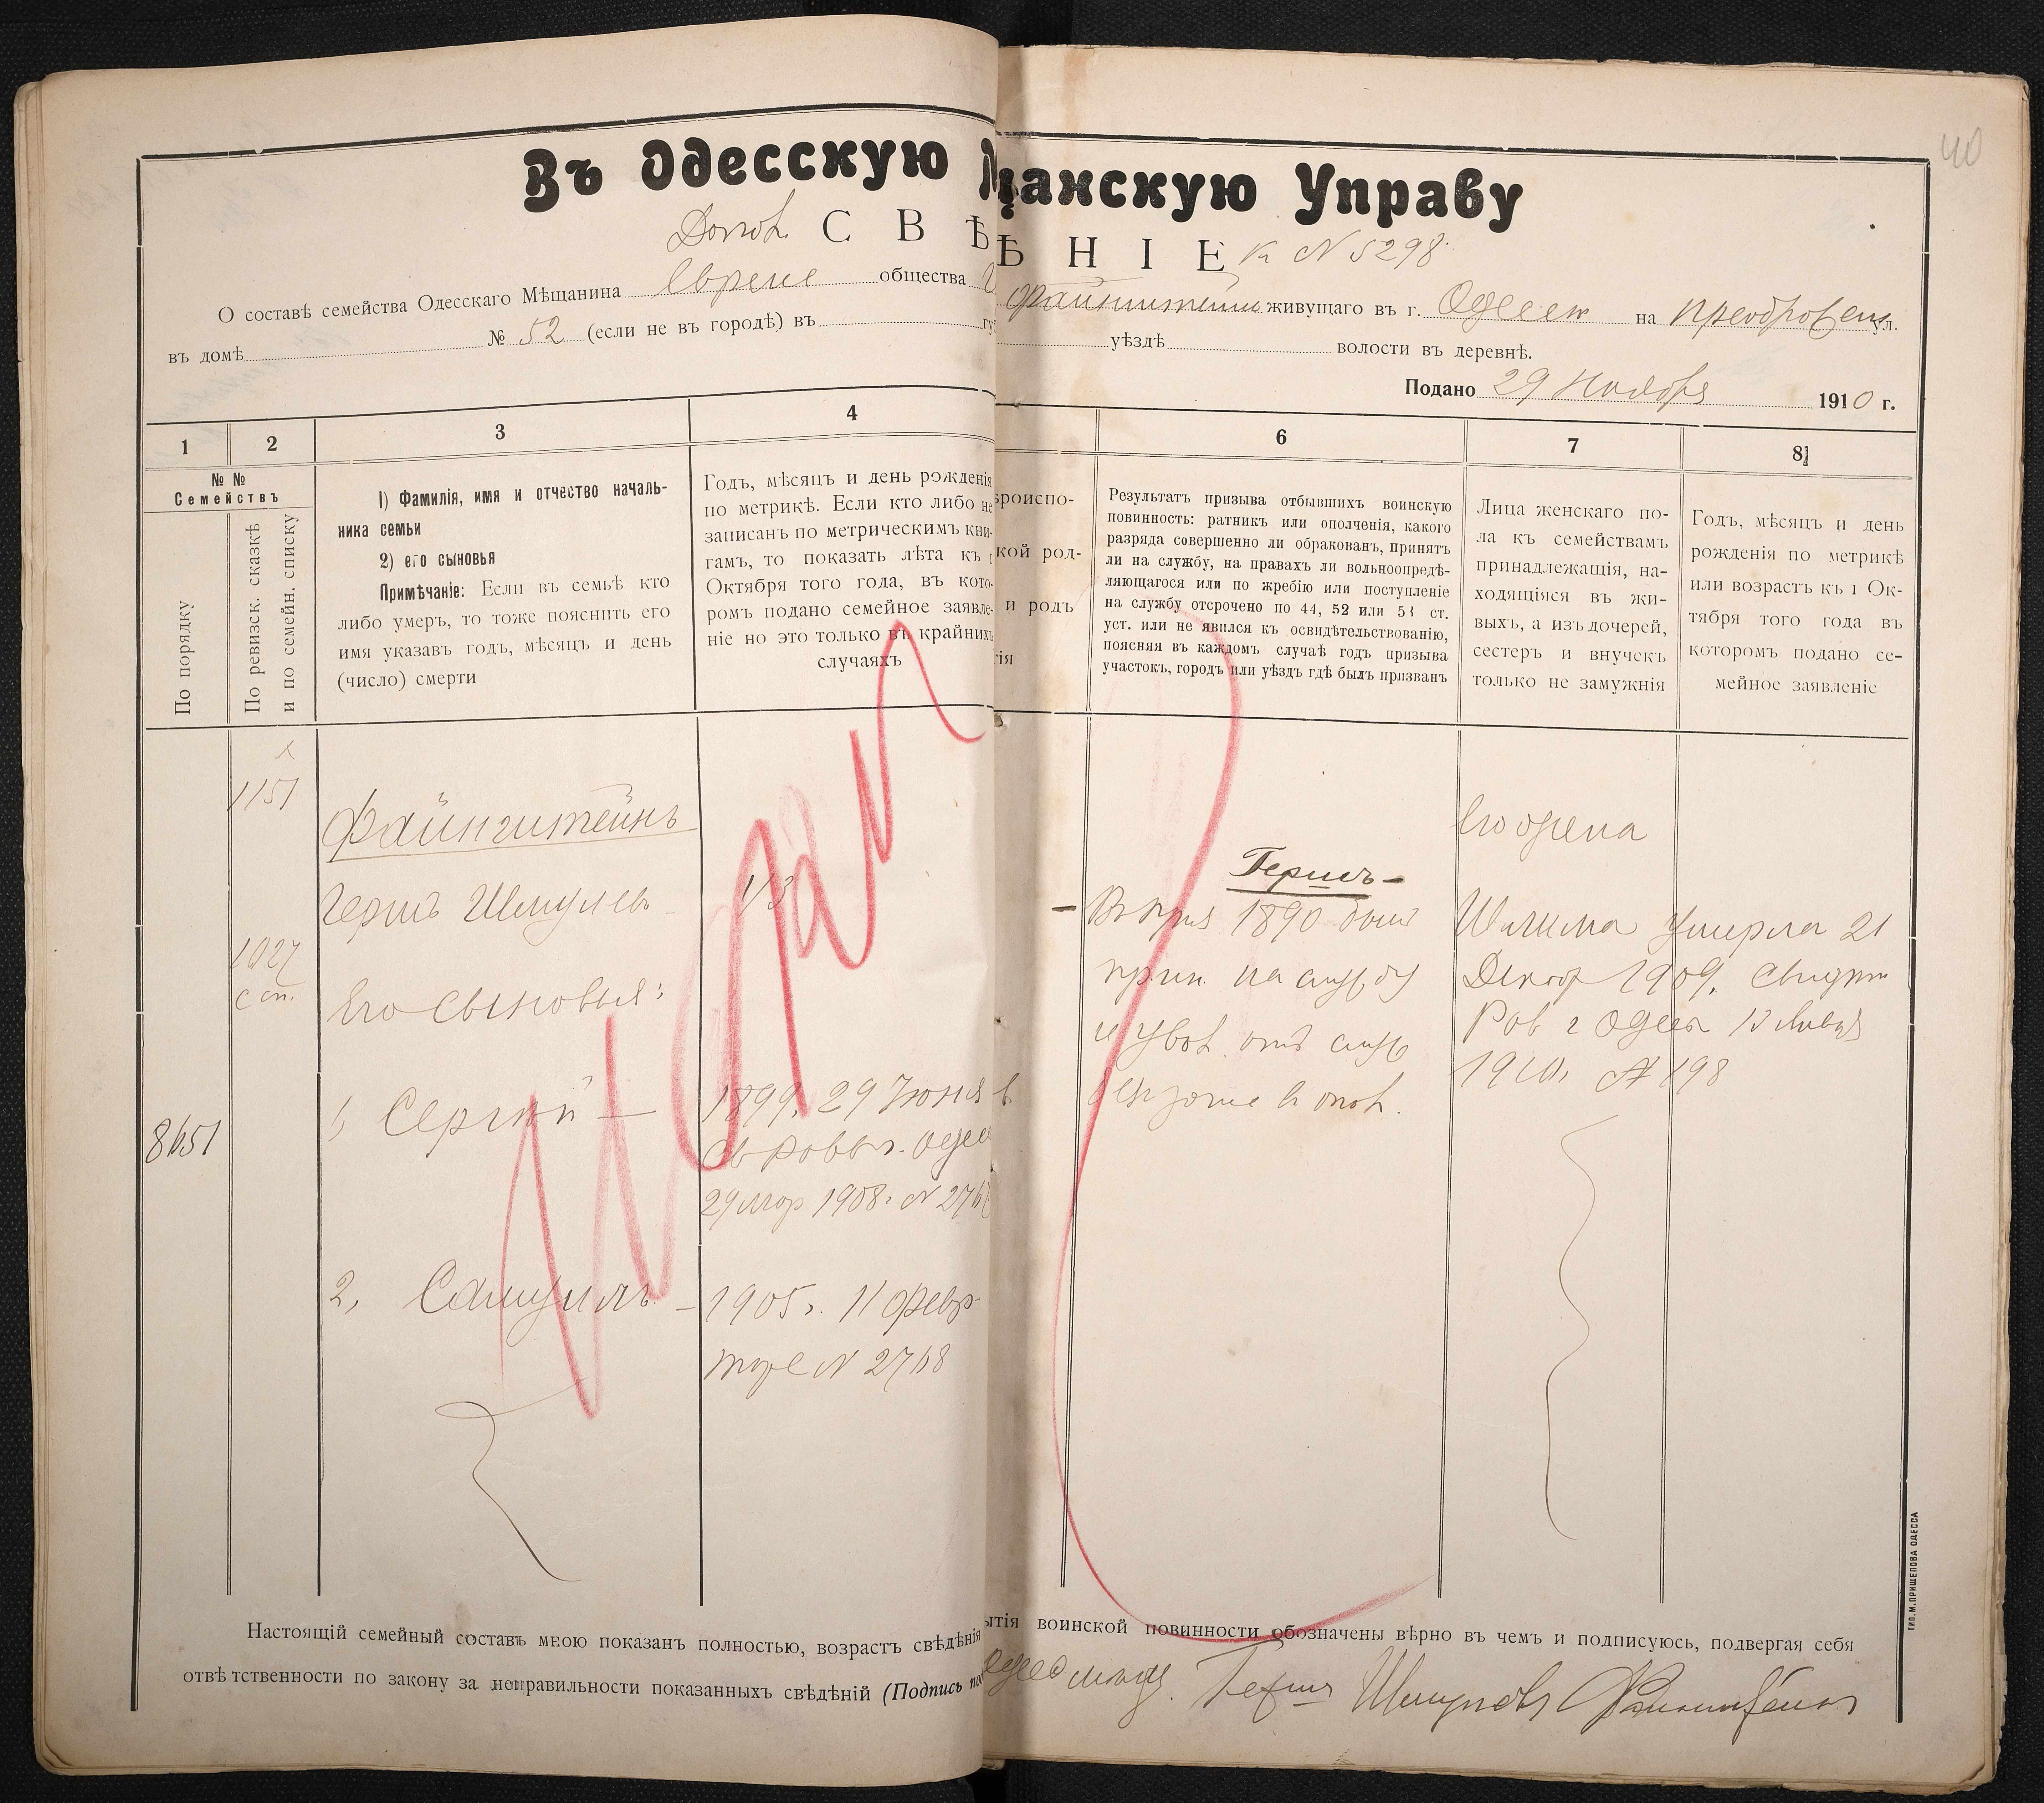 40
Въ Одесскую М щанскую Управу
С В Ѣ Ѣ Н І Е к № 5298
О составѣ семейства Одесскаго Мѣщанина Еврейс общества Файнштейн живущаго въ г. Одессѣ на Преображен ул.
въ домѣ № 52 (если не въ городѣ) въ гу уѣздѣ волости въ деревнѣ.
Подано 29 Ноября 1910 г.
1 2 3 4 6 7 8
№ №
Семействъ
По порядку
По ревизск. сказкѣ
и по семейн. списку
1) Фамилія, имя и отчество началь-
ника семьи
2) его сыновья
Примѣчаніе: Если въ семьѣ кто
либо умеръ, то тоже пояснить его
имя указавъ годъ, мѣсяцъ и день
(число) смерти
Годъ, мѣсяцъ и день рожденія
по метрикѣ. Если кто либо не
записанъ по метрическимъ кни-
гамъ, то показать лѣта къ 1
Октября того года, въ кото-
ромъ подано семейное заявле-
ніе но это только въ крайнихъ
случаяхъ
ѣроиспо-
кой род-
и родъ
тія
Результатъ призыва отбывшихъ воинскую
повинность: ратникъ или ополченія, какого
разряда совершенно ли обракованъ, принятъ
ли на службу, на правахъ ли вольноопредѣ-
ляющагося или по жребію или поступленіе
на службу отсрочено по 44, 52 или 53 ст.
уст. или не явился къ освидѣтельствованію,
поясняя въ каждомъ случаѣ годъ призыва
участокъ, городъ или уѣздъ гдѣ былъ призванъ
Лица женскаго по-
ла къ семействамъ
принадлежащія, на-
ходящіяся въ жи-
выхъ, а изъ дочерей,
сестеръ и внучекъ
только не замужнія
Годъ, мѣсяцъ и день
рожденія по метрикѣ
или возрастъ къ 1 Ок-
тября того года въ
которомъ подано се-
мейное заявленіе
1151
Файнштейнъ
Гершъ Шмулевъ
1027
с сп.
Его сыновья:
8651
1, Сергѣй — 1899. 29 Іюня
Св Равви г. Одес
29 мар 1908 г. № 2767
2, Самуилъ — 1905 г. 11 февр
тоже № 2768
Гершъ —
1890 был
прин. на службу
и увол. отъ служ
Его жена
Шлима умерла 21
Декаб 1909. Свидѣт
Рав г Одессы 13 Января
1910, № 198
Настоящій семейный составъ мною показанъ полностью, возрастъ свѣдѣнія ытія воинской повинности обозначены вѣрно въ чемъ и подписуюсь, подвергая себя
отвѣтственности по закону за неправильности показанныхъ свѣдѣній (Подпись по Одес мѣщ. Гершъ Шмулевъ Файнштейнъ
ТИП. М. ПРИЩЕПОВА ОДЕССА